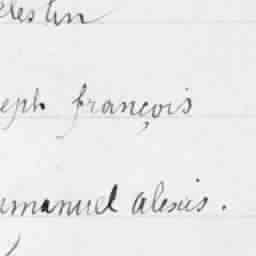 elestin
seph françois
emmanuel alexis.